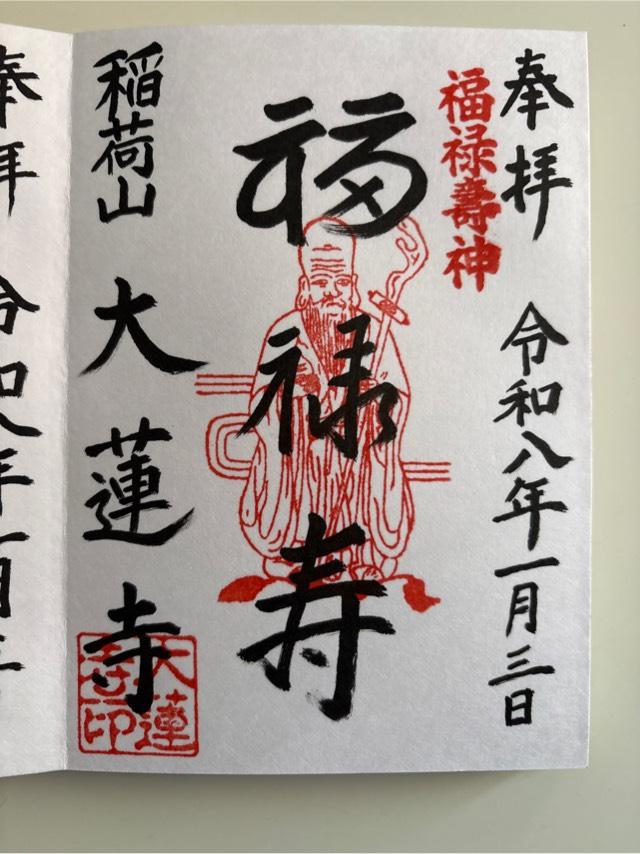 奉拝
令和八年一月三日
福禄壽神
福禄寿
稲荷山
大蓮寺
大蓮
寺印
奉拝
令和八年一月三